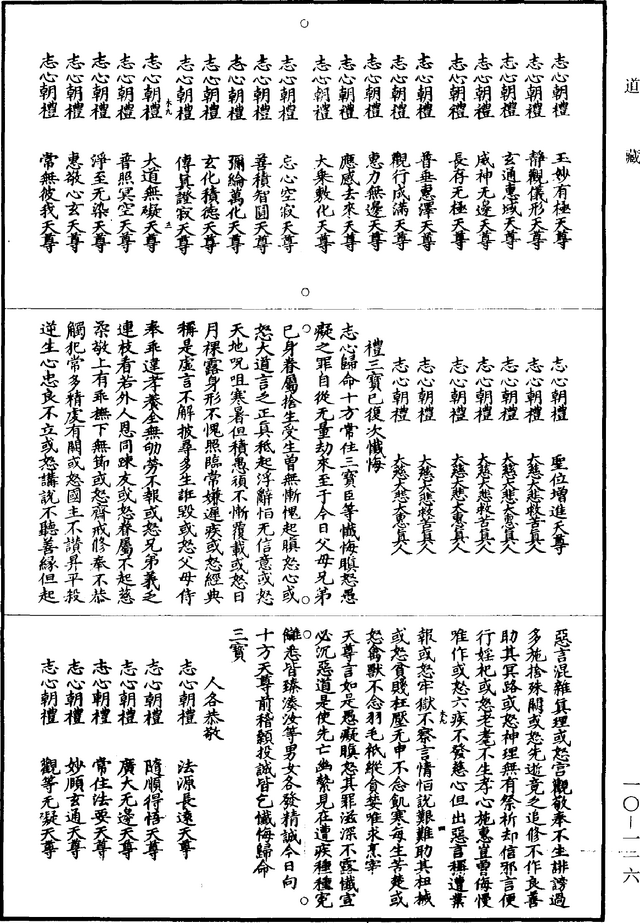 道藏
志心朝禮　玉妙有極天尊
志心朝禮　靜觀儀形天尊
志心朝禮　玄通惠域天尊
志心朝禮　威神无邊天尊
志心朝禮　長存无極天尊
志心朝禮　普垂惠澤天尊
志心朝禮　觀行成滿天尊
志心朝禮　惠力無邊天尊
志心朝禮　應感去來天尊
志心朝禮　大乘敷化天尊
志心朝禮　忘心空寂天尊
志心朝禮　善積智圓天尊
志心朝禮　彌綸萬化天尊
志心朝禮　玄化積德天尊
志心朝禮　傳真證寂天尊
志心朝禮　大道無礙天尊
志心朝禮　普照冥空天尊
志心朝禮　淨至无染天尊
志心朝禮　惠敬心玄天尊
志心朝禮　常無彼我天尊
志心朝禮　聖位增進天尊
志心朝禮　大慈大悲救苦真人
志心朝禮　大慈大悲大惠真人
志心朝禮　大慈大悲救苦真人
志心朝禮　大慈大悲大惠真人
志心朝禮　大慈大悲救苦真人
志心朝禮　大慈大悲大惠真人
禮三寶已復次懺悔
志心歸命十方常住三寶臣等懺悔瞋怒愚
癡之罪自從无量劫來至于今日父母兄弟
巳身眷屬捨生受生曾無慚愧起瞋怒心或
怒大道言之正真秖起浮辭怕无信意或怒
天地呪咀寒暑但積愚頑不慚覆載或怒日
月裸露身形不愧照臨常嫌遲疾或怒經典
稱是虛言不解披尋多生誹毀或怒父母侍
奉乖違孝養全無劬勞不報或怒兄弟義乏
連枝看若外人恩同踈友或怒眷屬不起慈
深敬上有乖撫下無節或怒齊戒修奉不恭
觸犯常多精處有闕或怒國主不讚昇平投
逆生心忠良不立或怒講說不聽善緣但起
惡言混雜真理或怒宮觀敬奉不生誹謗過
多施捨殊闕或怒先逝竟之追修不作良善
助其冥路或怒神理無有祭祈却信邪言便
行婬祀或怒老耄不生孝心施惠豈曾侮慢
唯作或怒六疾不發慈心但出惡言稱遭業
報或怒牢獄不察言情怕說艱難助其枉械
或怒貧賤枉壓无申不念飢寒每生苦楚或
怒禽獸不念羽毛秖縱貪婪唯求烹宰
天尊言如是愚癡瞋怒其罪滋深不露懺宣
必沉惡道是使先亡幽縶見在遭疾種種寃
讎悉皆臻湊汝等男女各發精誠今日向
十方天尊前稽顙投誠皆乞懺悔歸命
三寶
人各恭敬
志心朝禮　法源長遠天尊
志心朝禮　隨順得悟天尊
志心朝禮　廣大无邊天尊
志心朝禮　常住法要天尊
志心朝禮　妙順玄通天尊
志心朝禮　觀等无礙天尊
一〇－一二六